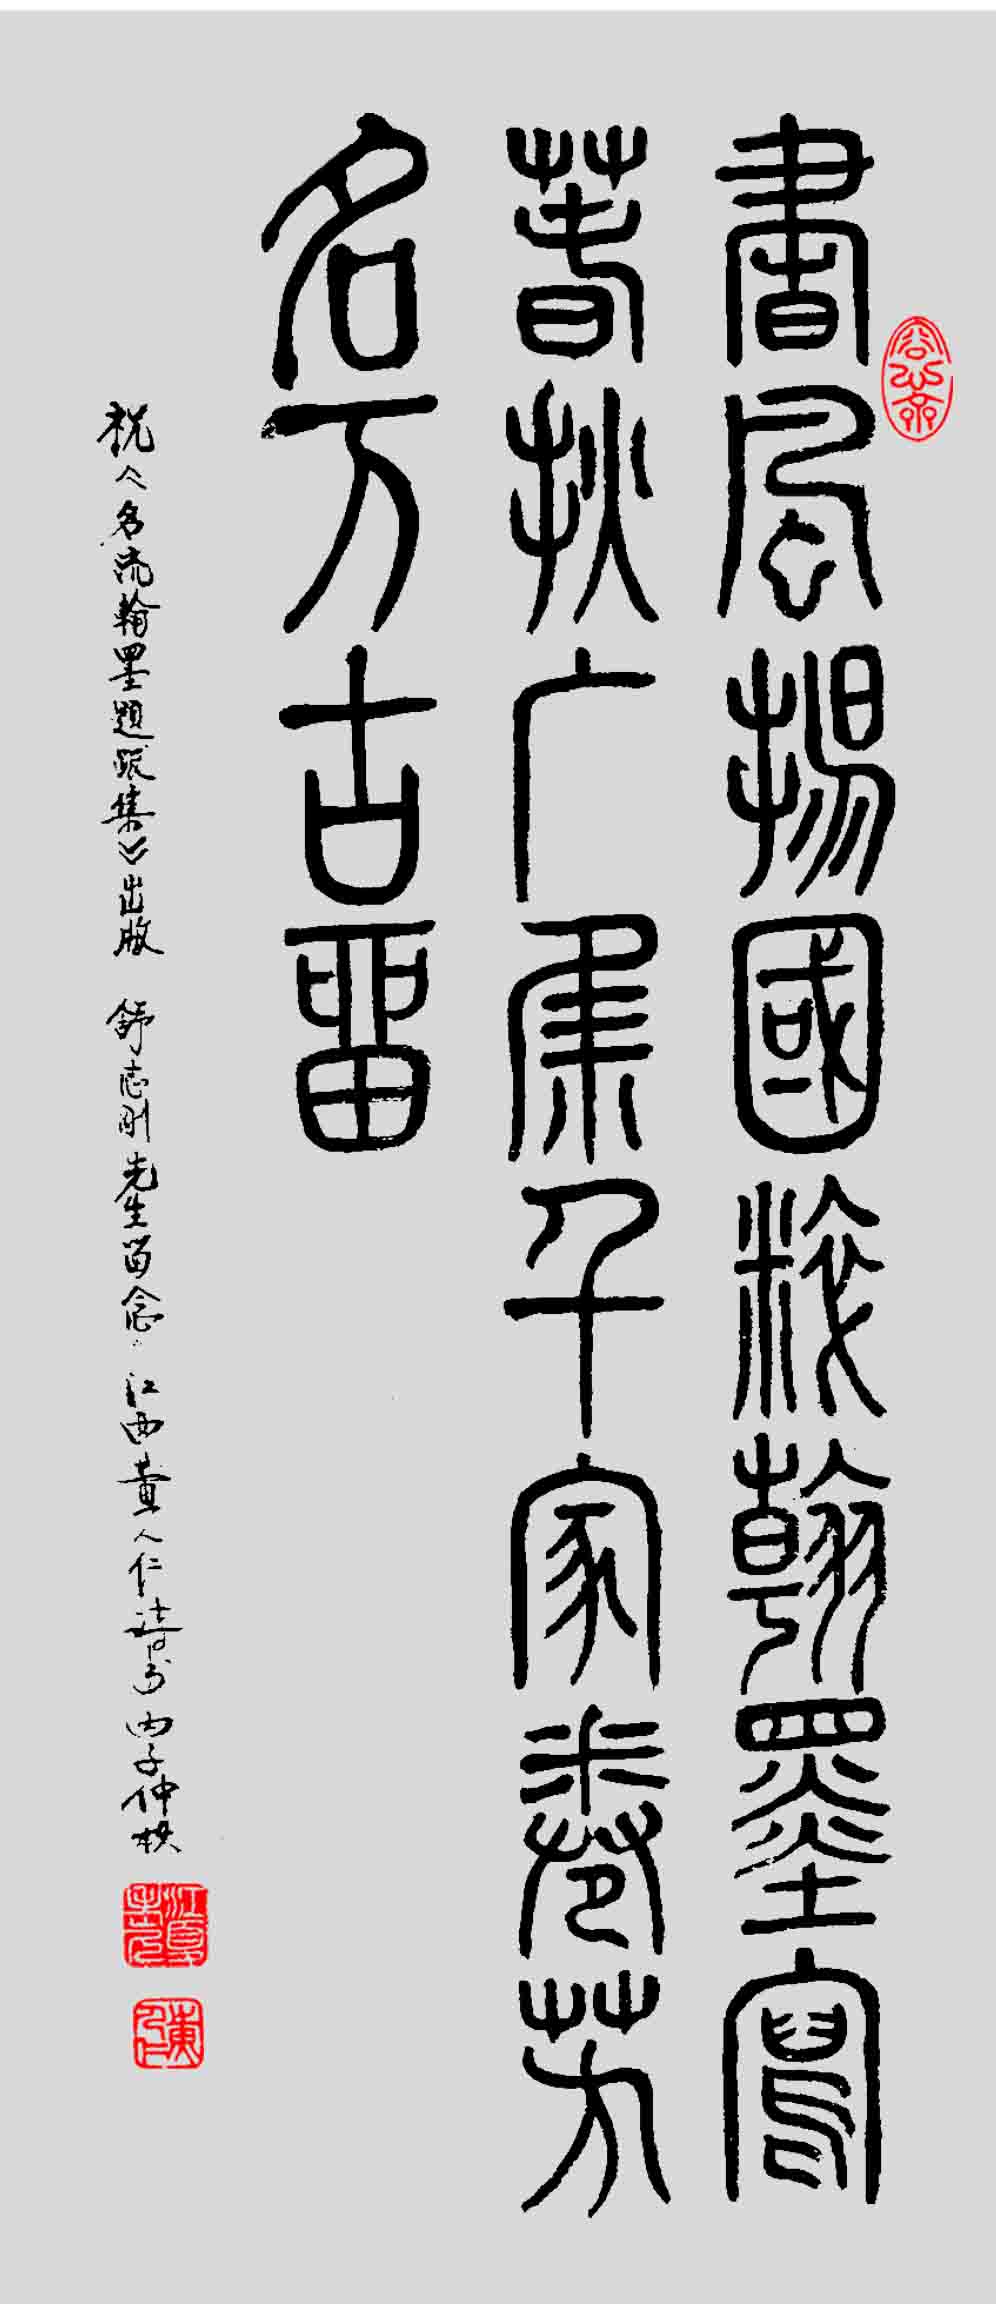 書風揚國粹翰墨寫
春秋广集千家卷芳
名万古留
祝《名流翰墨題跋集》出版 舒志刚先生留念 江西黄人仁 丙子仲秋